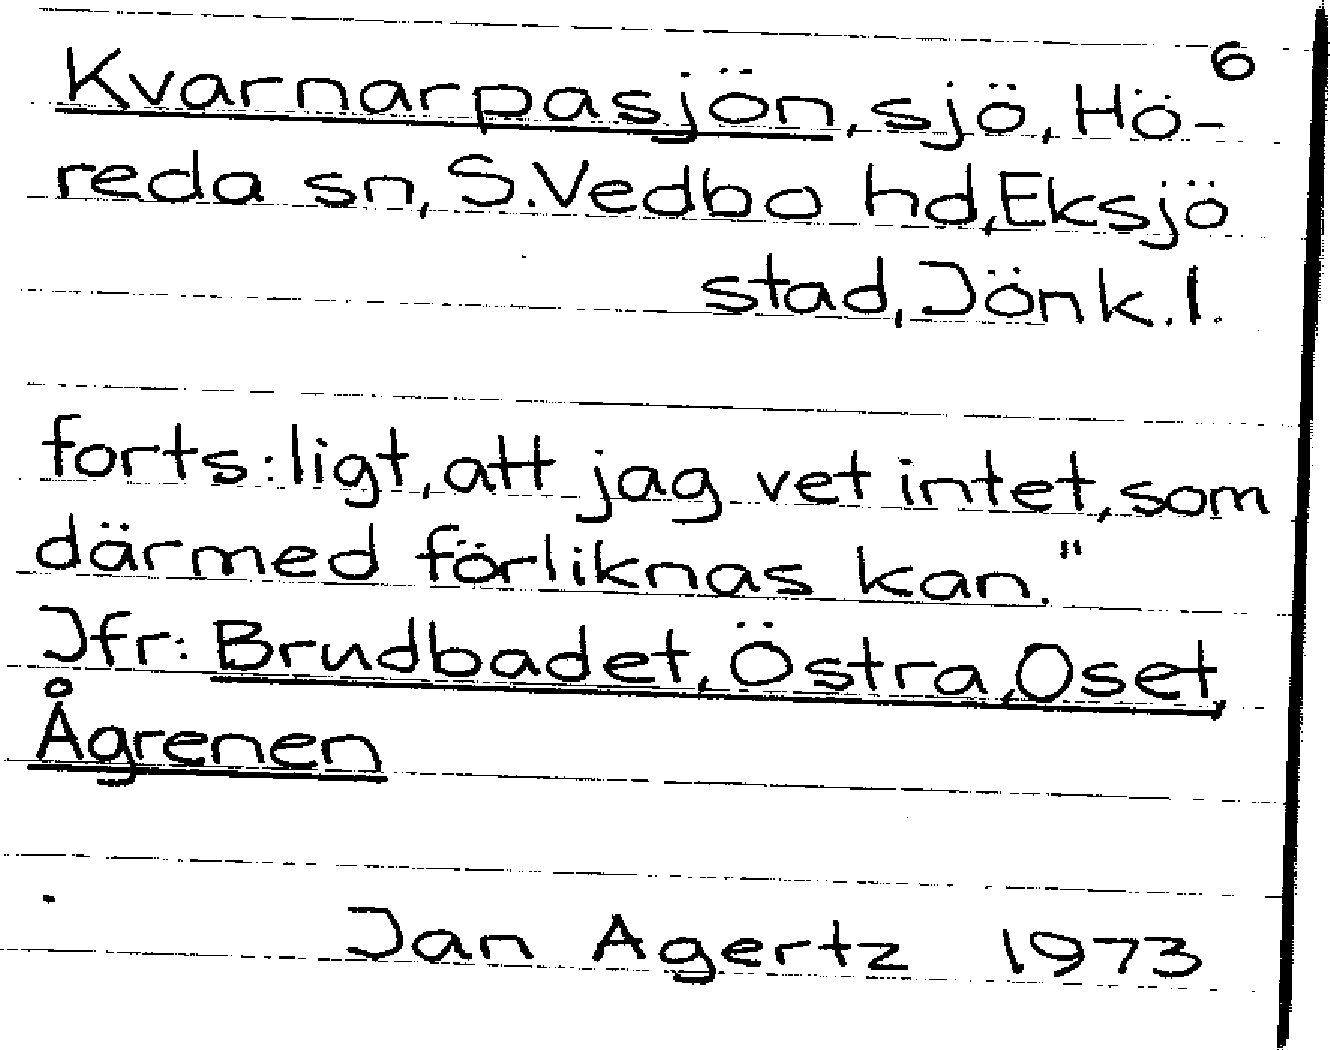 6
Kvarnarpasjön, sjö, Hö-
reda sn, S.Vedbo hd, Eksjö
stad, Jönk.l.
forts:ligt, att jag vet intet, som
därmed förliknas kan."
Jfr: Brudbadet, Östra, Oset,
Ågrenen
Jan Agertz 1973